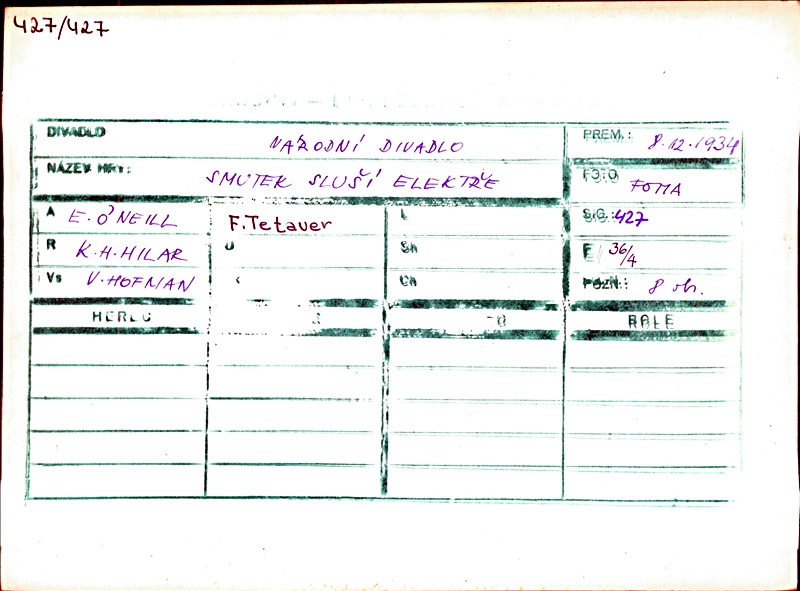 427/427
DIVADLO NÁRODNÍ DIVADLO PREM.: 8.12.1934
NÁZEV HRY: SMUTEK SLUŠÍ ELEKTŘE FOTO FOMA
A E. O'NEILL F. Tetauer L SIG.: 427
R K.H. HILAR Sh F 36/4
Vs V. HOFMAN Ch POZN.: 8 ob.
HEREC ROLE